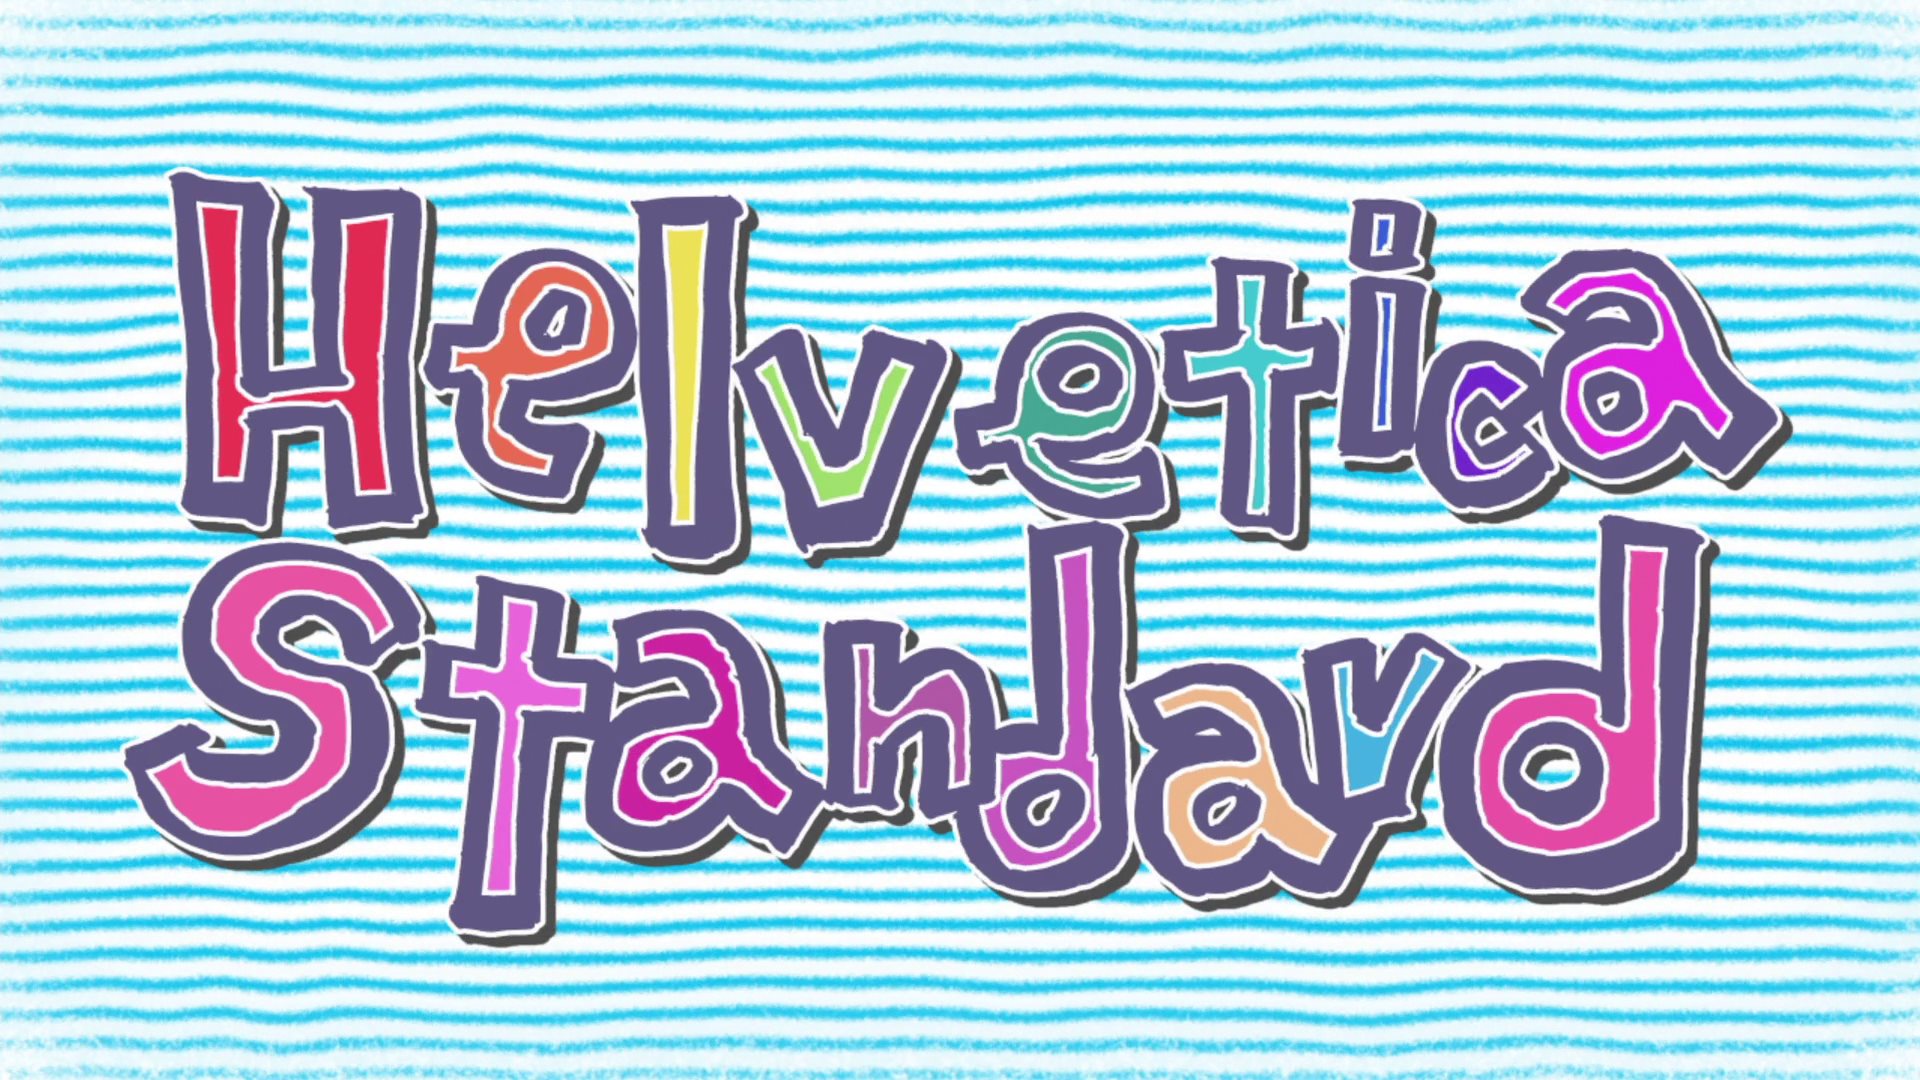 Helvetica
Standard